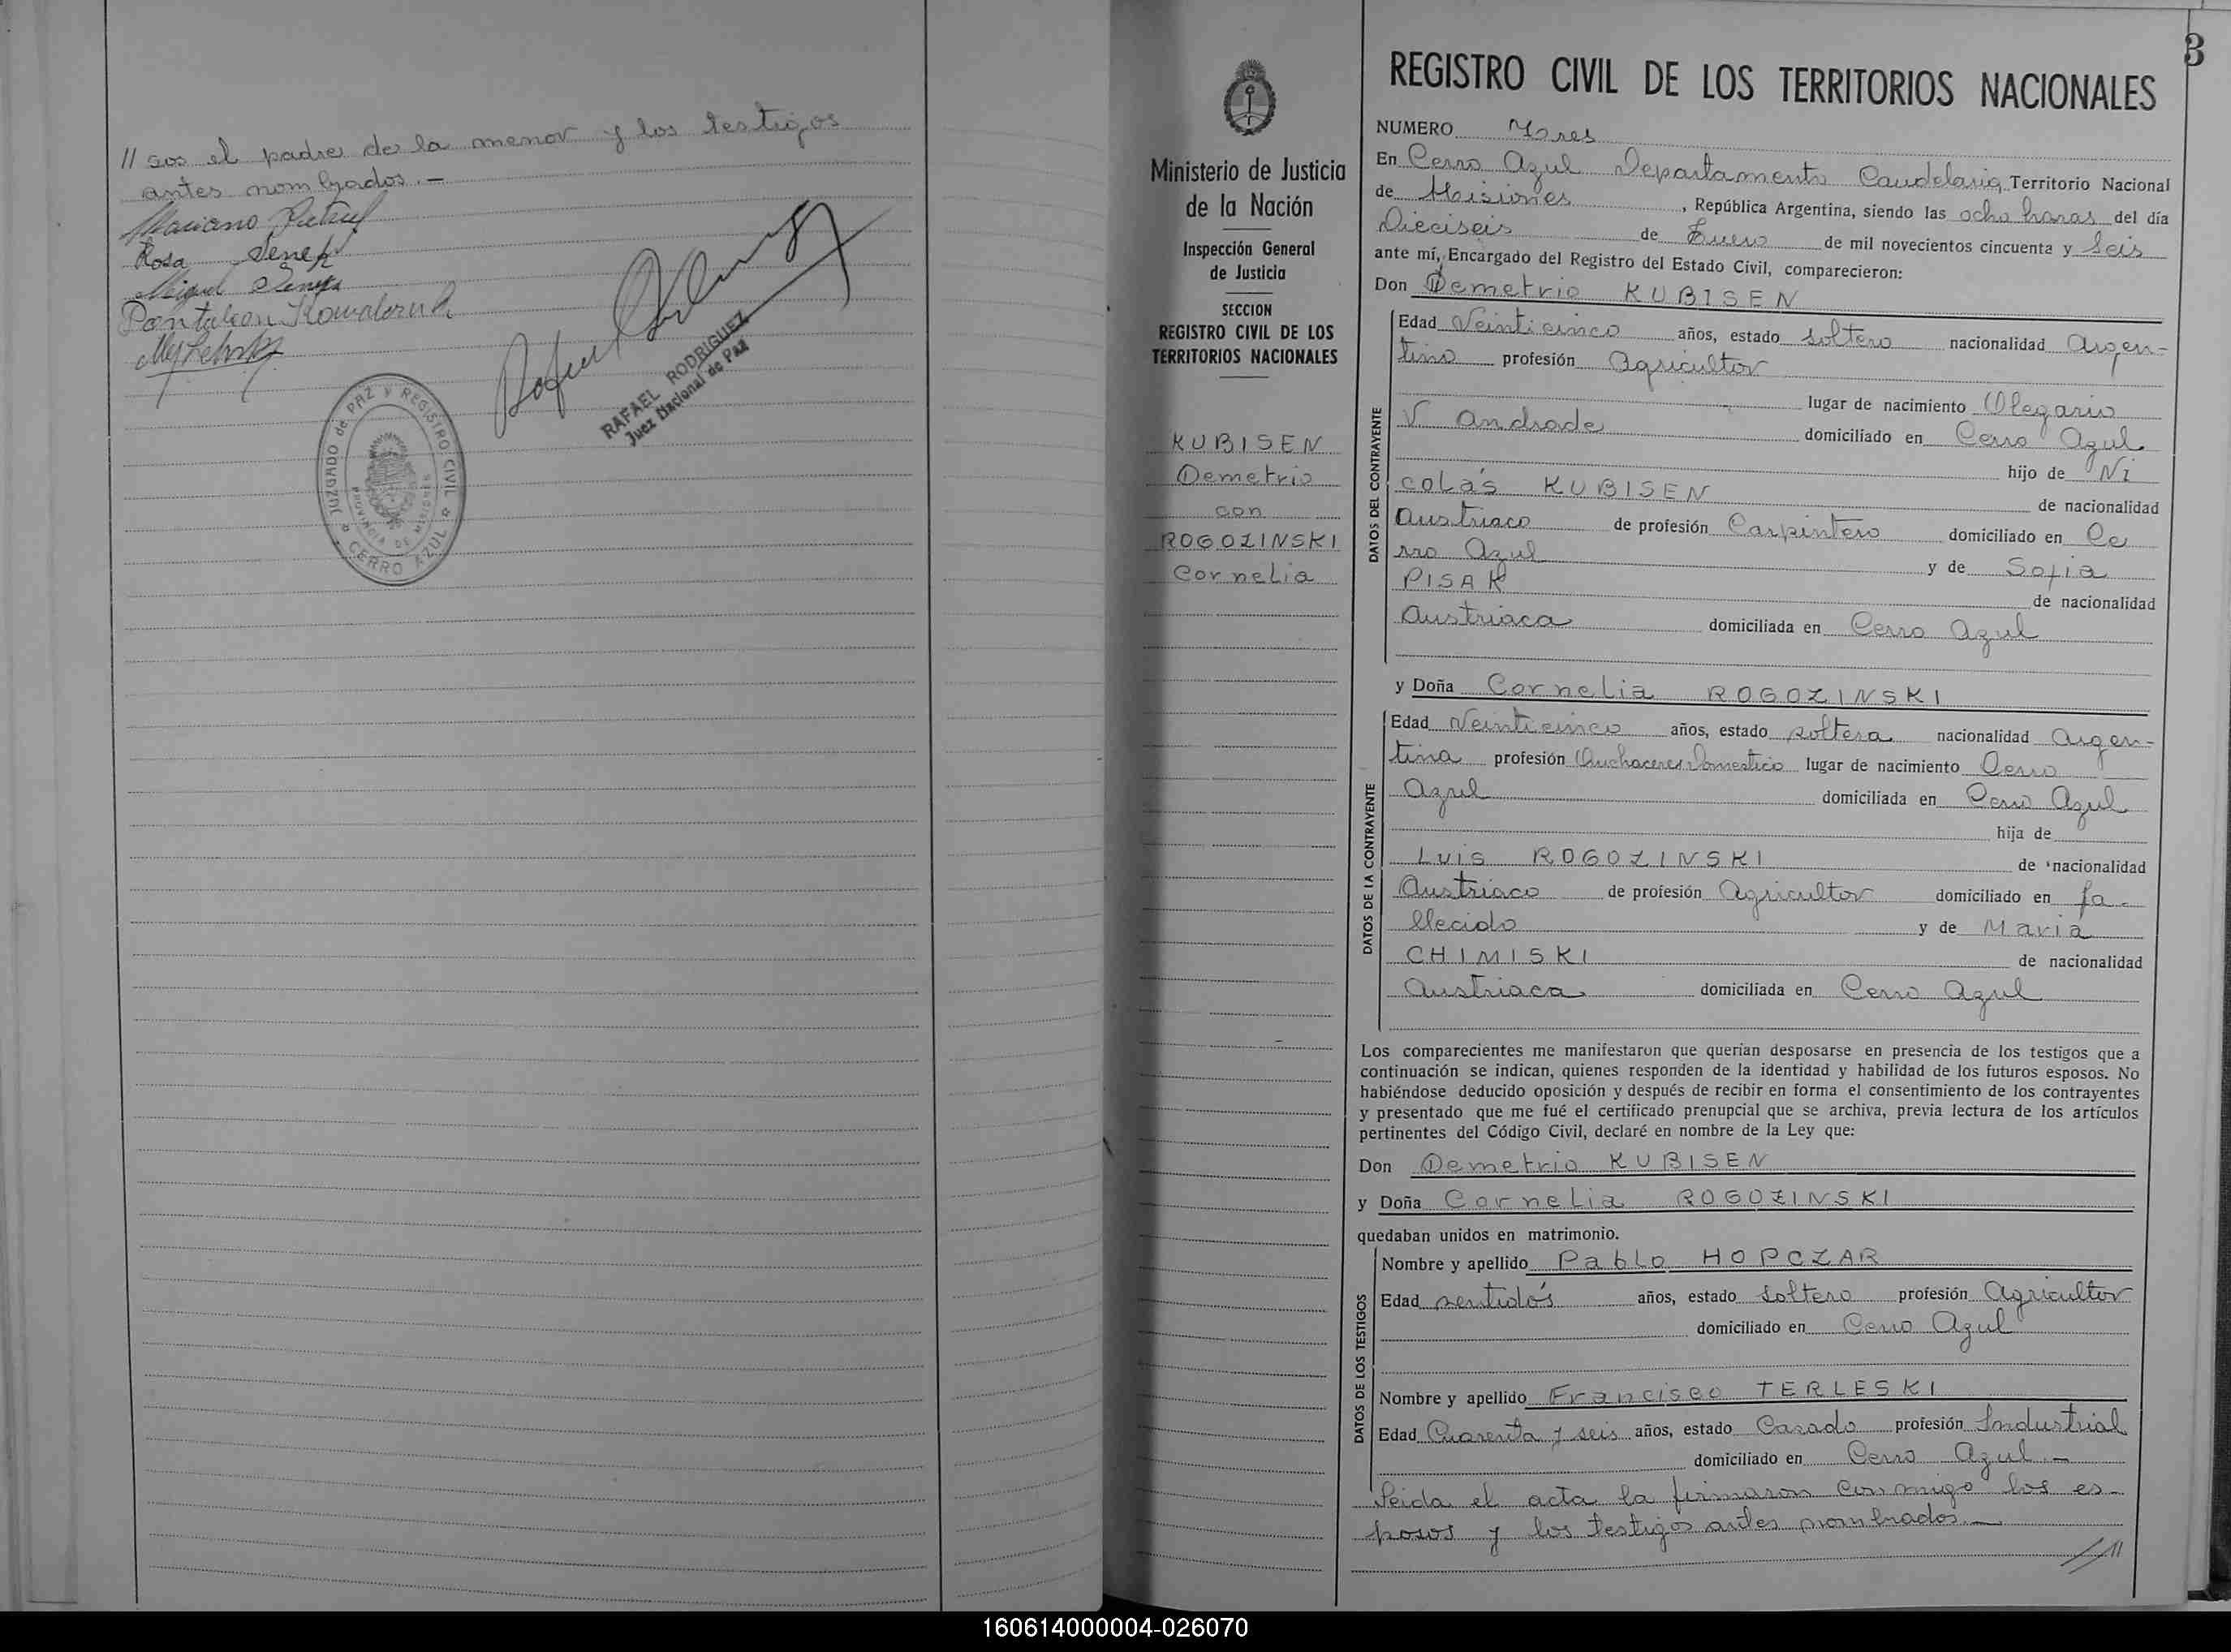 // sos el padre de la menor y los testigos
antes nombrados.-
Mariano
Rosa
Miguel
RAFAEL RODRIGUEZ
Juez Nacional de Paz
JUZGADO de PAZ y REGISTRO CIVIL
PROVINCIA DE MISIONES
CERRO AZUL
3
REGISTRO CIVIL DE LOS TERRITORIOS NACIONALES
Ministerio de Justicia
de la Nación
Inspección General
de Justicia
SECCION
REGISTRO CIVIL DE LOS
TERRITORIOS NACIONALES
KUBISEN
Demetrio
con
ROGOZINSKI
Cornelia
NUMERO Tres
En Cerro Azul Departamento Candelaria Territorio Nacional
de Misiones, República Argentina, siendo las ocho horas del día
Dieciseis de Enero de mil novecientos cincuenta y Seis
ante mí, Encargado del Registro del Estado Civil, comparecieron:
Don Demetrio KUBISEN
DATOS DEL CONTRAYENTE
Edad Veinticinco años, estado soltero nacionalidad Argen-
tino profesión Agricultor
lugar de nacimiento Olegario
V. Andrade domiciliado en Cerro Azul
hijo de Ni
colás KUBISEN de nacionalidad
Austriaco de profesión Carpintero domiciliado en Ce
rro Azul y de Sofia
PISAK de nacionalidad
Austriaca domiciliada en Cerro Azul
y Doña Cornelia ROGOZINSKI
DATOS DE LA CONTRAYENTE
Edad Veinticinco años, estado soltera nacionalidad Argen-
tina profesión Quehaceres Domestico lugar de nacimiento Cerro
Azul domiciliada en Cerro Azul
hija de
Luis ROGOZINSKI de nacionalidad
Austriaco de profesión Agricultor domiciliado en fa-
llecido y de María
CHIMISKI de nacionalidad
Austriaca domiciliada en Cerro Azul
Los comparecientes me manifestaron que querían desposarse en presencia de los testigos que a
continuación se indican, quienes responden de la identidad y habilidad de los futuros esposos. No
habiéndose deducido oposición y después de recibir en forma el consentimiento de los contrayentes
y presentado que me fué el certificado prenupcial que se archiva, previa lectura de los artículos
pertinentes del Código Civil, declaré en nombre de la Ley que:
Don Demetrio KUBISEN
y Doña Cornelia ROGOZINSKI
quedaban unidos en matrimonio.
DATOS DE LOS TESTIGOS
Nombre y apellido Pablo HOPCZAR
Edad ventidós años, estado soltero profesión Agricultor
domiciliado en Cerro Azul
Nombre y apellido Francisco TERLESKI
Edad Cuarenta y seis años, estado Casado profesión Industrial
domiciliado en Cerro Azul.-
Leida el acta la firmaron conmigo los es-
posos y los testigos antes nombrados.-
//
160614000004-026070